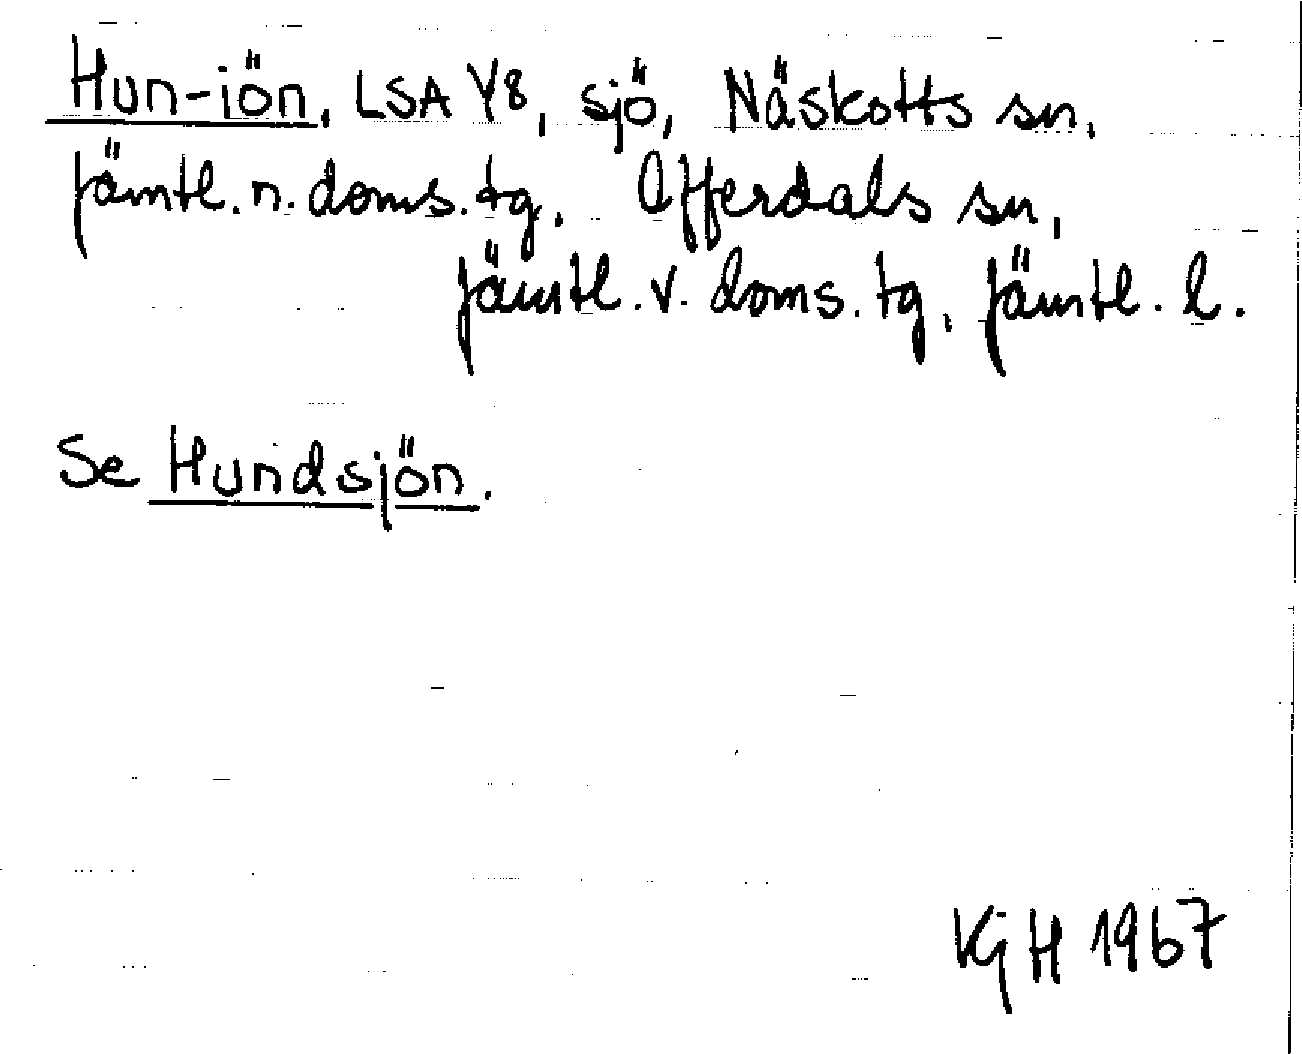 Hun-iön, LSA Y8, sjö, Näskotts sn,
Jämtl. n. doms. tg. Offerdals sn,
Jämtl. v. doms. tg, Jämtl. l.
Se Hundsjön.
KGH 1967